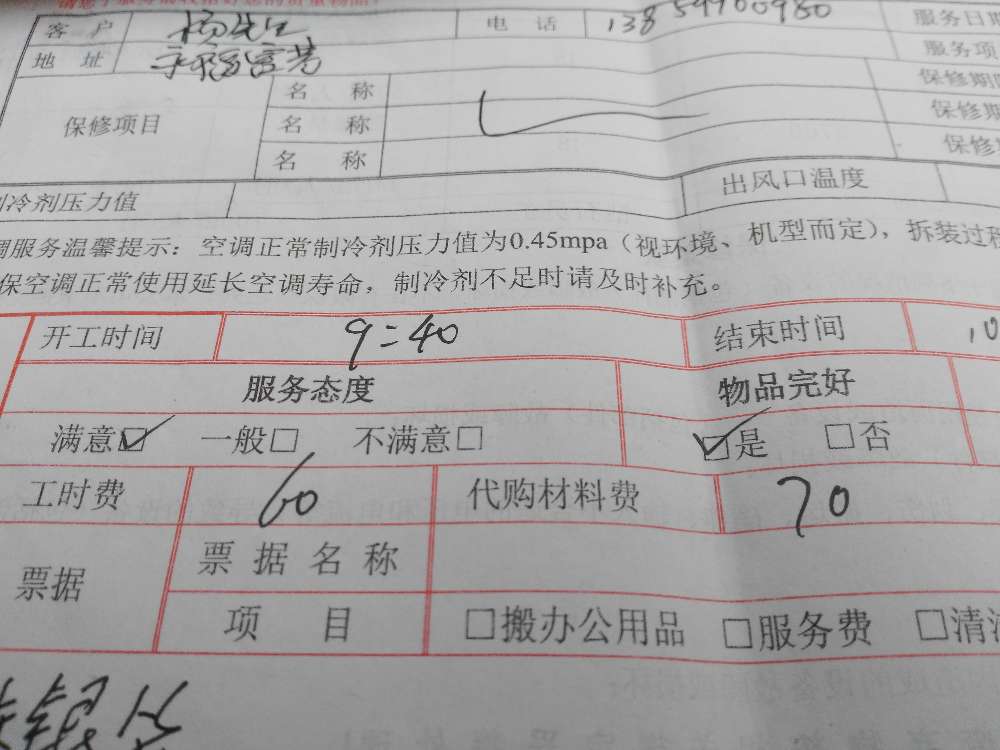 客户 杨先生 电话 13859900980 服务日期
地址 永福富芳 服务项
保修项目 名称 保修期
名称 保修期
名称 保修
制冷剂压力值 出风口温度
调服务温馨提示：空调正常制冷剂压力值为0.45mpa（视环境、机型而定），拆装过程
保空调正常使用延长空调寿命，制冷剂不足时请及时补充。
开工时间 9:40 结束时间 10
服务态度 物品完好
满意☑ 一般□ 不满意□ ☑是 □否
工时费 60 代购材料费 70
票据 票据名称
项目 □搬办公用品 □服务费 □清